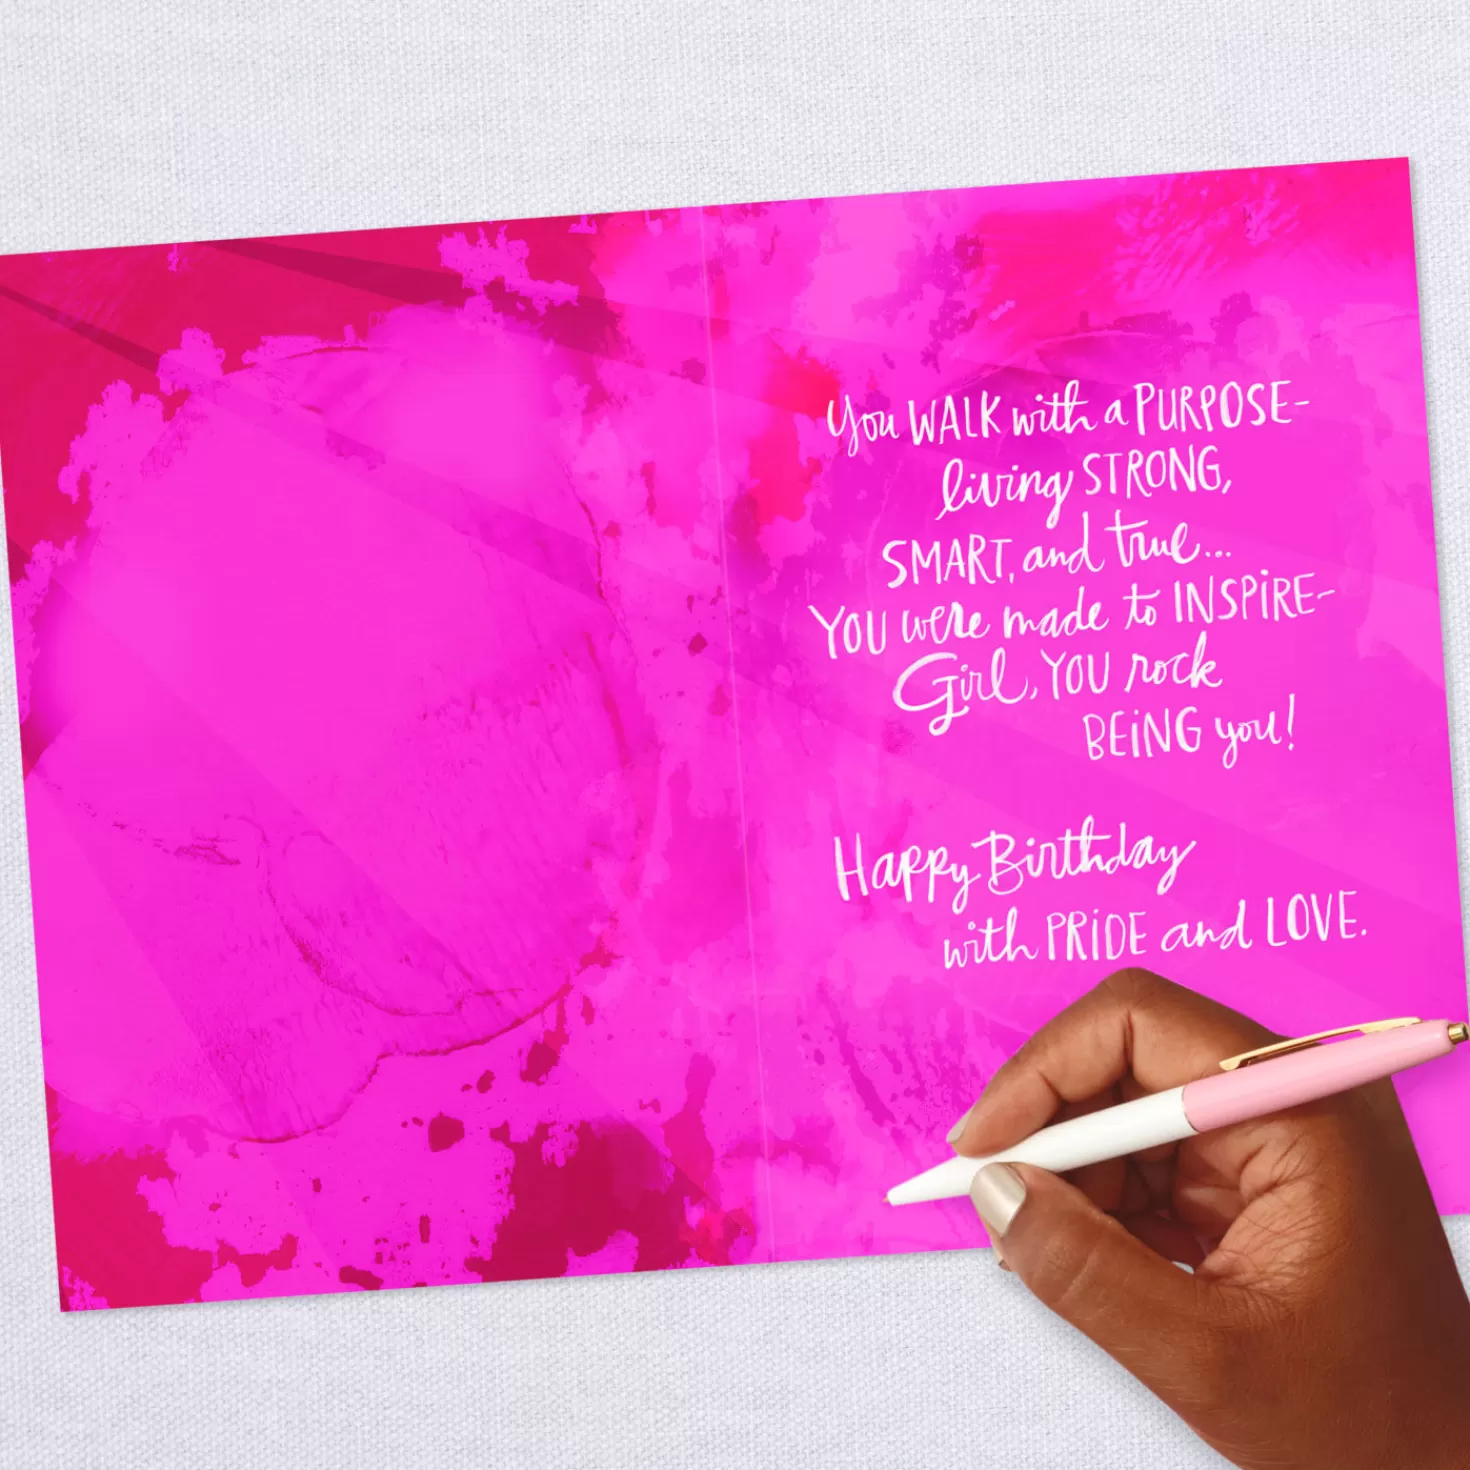 You WALK with a PURPOSE-
living STRONG,
SMART, and true...
YOU were made to INSPIRE-
Girl, YOU rock
BEING you!
Happy Birthday
with PRIDE and LOVE.